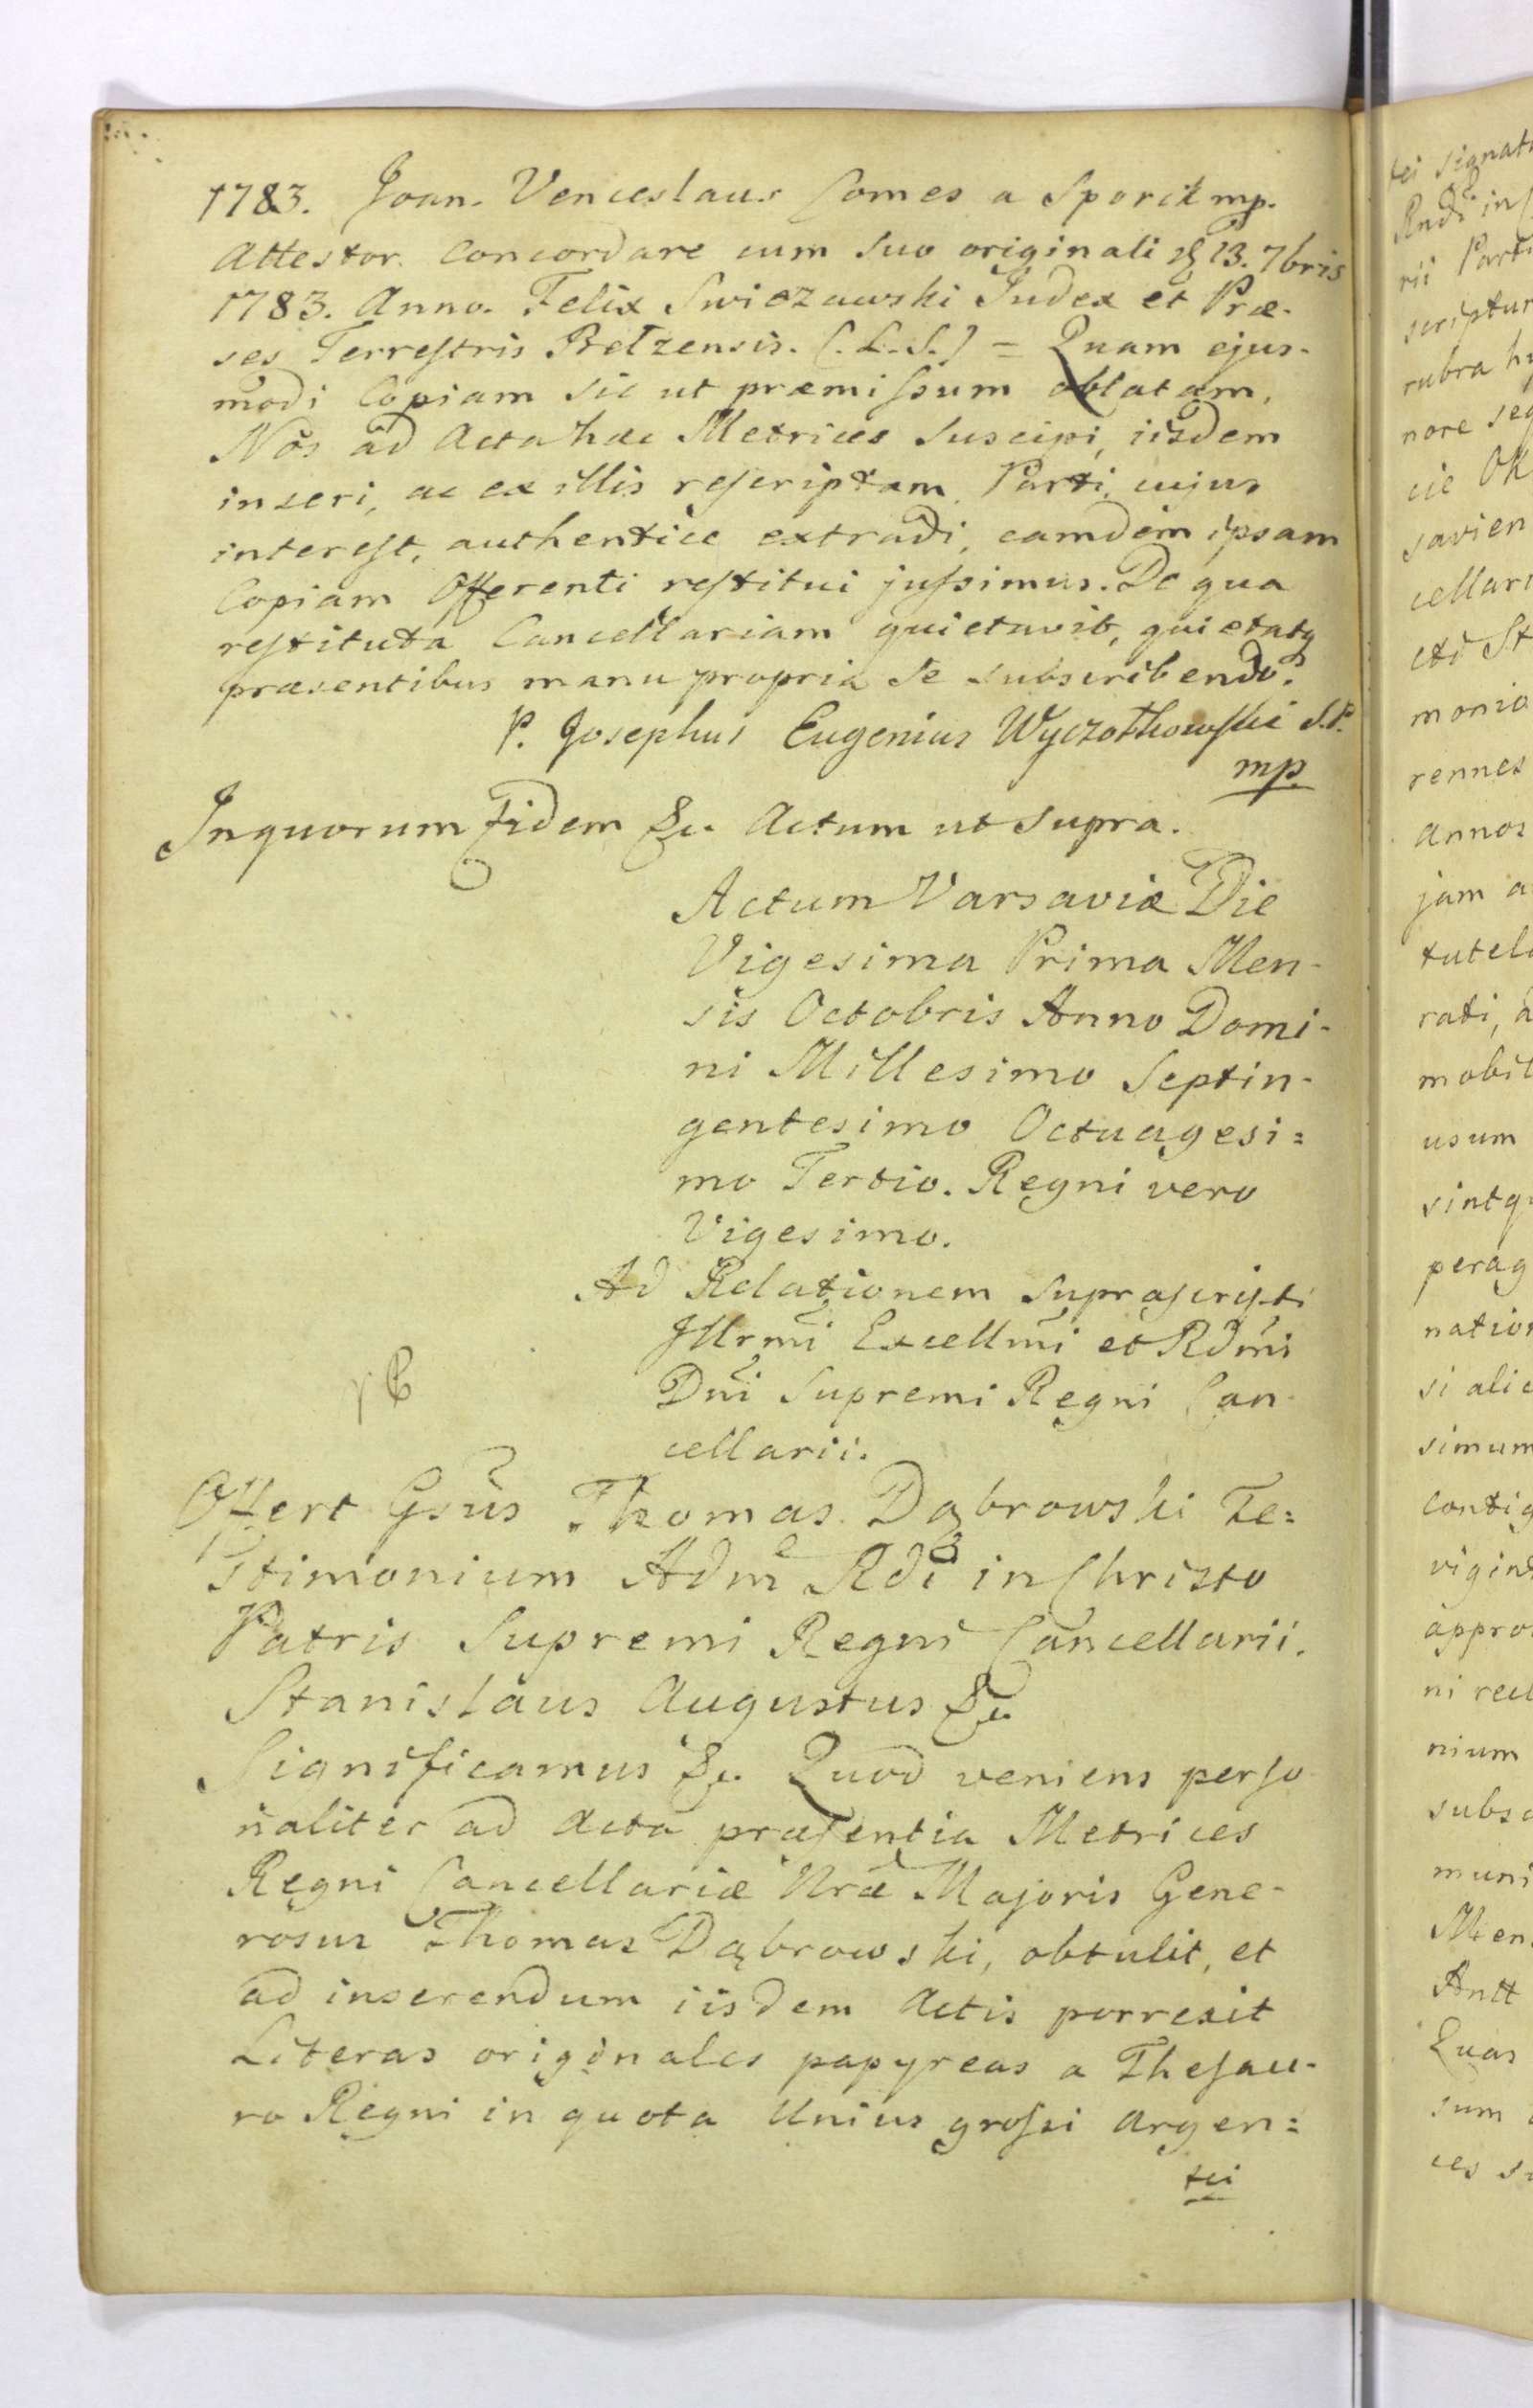 1783. Joan. Venceslaus Comes a Sporck mp.
Attestor. Concordare cum suo originali 13. 7bris
1783. Anno. Felix Swiezawski Judex et Præ-
ses Terrestris Betzensis. (.L.S.) = Quam ejus-
modi Copiam sic ut præmissum oblatam,
Nos ad Acta hæc Metrices suscipi, iisdem
inseri, ac ex illis rescriptam Parti, cujus
interest, authentice extradi, eamdem ipsam
Copiam Offerenti restitui jussimus. De qua
restituta Cancellariam quietavit, quietatq
præsentibus manu propria se subscribendo.
P. Josephus Eugenius Wyczothowski S.P.
mp.
In quorum fidem &c. Actum ut supra.
Actum Varsaviæ Die
Vigesima Prima Men-
sis Octobris Anno Domi-
ni Millesimo Septin-
gentesimo Octuagesi=
mo Tertio. Regni vero
Vigesimo.
Ad Relationem suprascripti
Illrmi Excellmi et Rdmi
Dni Supremi Regni Can-
cellarii.
Offert Gsus Thomas Dąbrowski Te=
stimonium Adm Rdi in Christo
Patris Supremi Regni Cancellarii.
Stanislaus Augustus &c.
Significamus &c. Quod veniens perso-
naliter ad Acta præsentia Metrices
Regni Cancellariæ Nræ Majoris Gene-
rosus Thomas Dąbrowski, obtulit, et
ad inserendum iisdem Actis porrexit
Literas originales papyreas a Thesau-
ro Regni in quota Unius grossi argen=
tei
tei signat
Rndi in
rii Part
scriptur
rubra
nore seq
cie
savien
cellar
monio
rennes
annos
jam a
tutel
rati, a
mobil
usum
sintq
perag
nation
si alic
simum
contig
vigint
appro
ni rec
nium
subsc
muni
Men
Antt
Quas
sum
ces